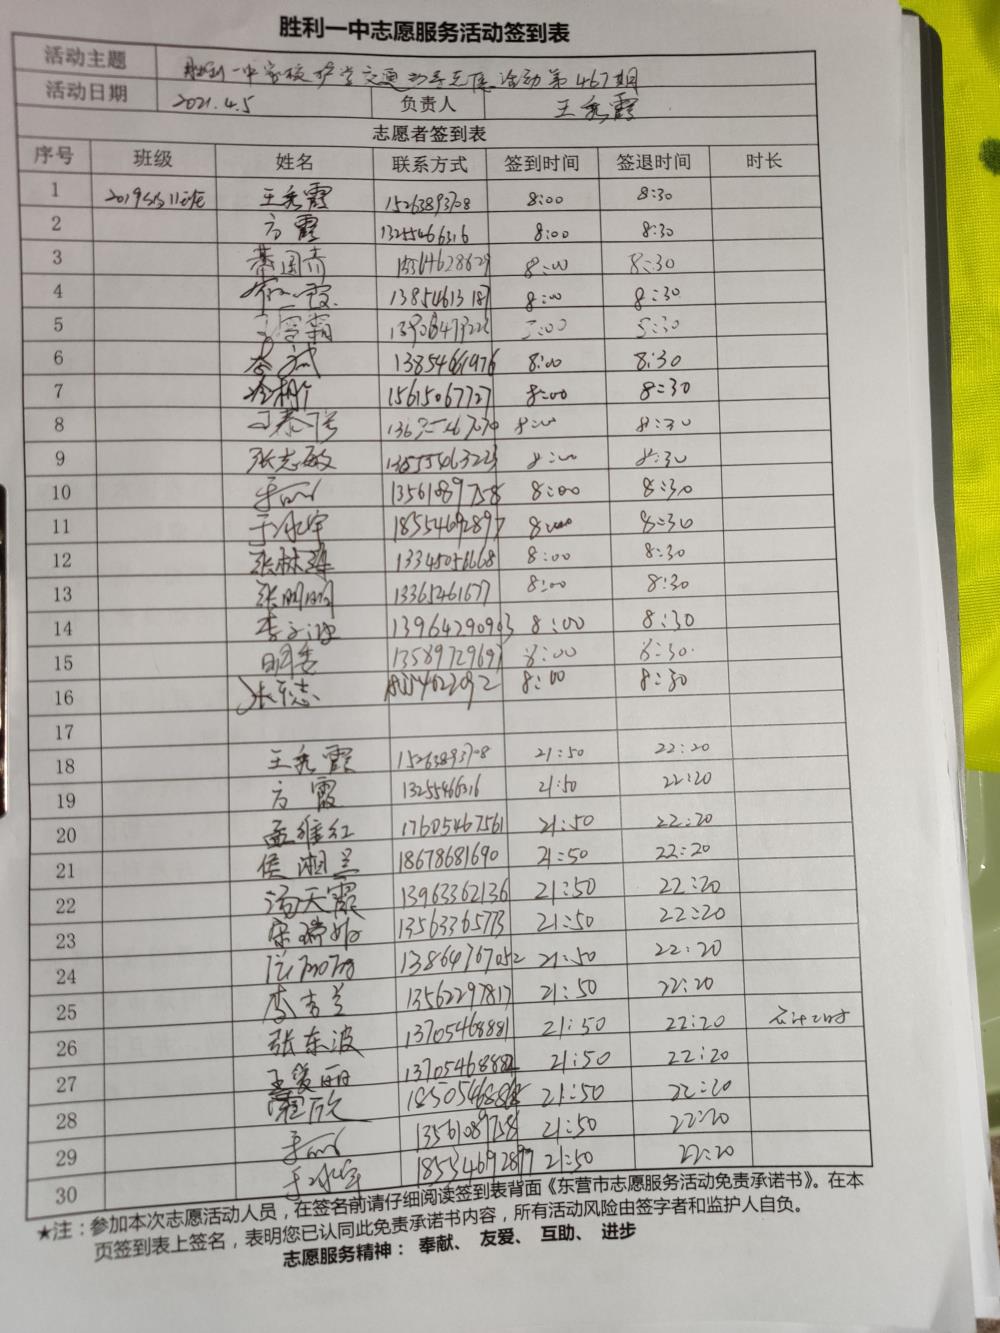 胜利一中志愿服务活动签到表
活动主题 胜利一中家校护学交通 活动第467期
活动日期 2021.4.5 负责人 王秀霞
志愿者签到表
序号 班级 姓名 联系方式 签到时间 签退时间 时长
1 2019级11班 王秀霞 15263893708 8:00 8:30
2 方霞 13255466316 8:00 8:30
3 8:00 8:30
4 13854613187 8:00 8:30
5 8:30
6 李斌 13854661976 8:00 8:30
7 15615067727 8:00 8:30
8 8:00 8:30
9 张志敏 13855463223 8:00 8:30
10 13561089758 8:00 8:30
11 于冰宇 18554692897 8:00 8:30
12 张林莲 13345056668 8:00 8:30
13 张明鹏 13365461677 8:00 8:30
14 13964290903 8:00 8:30
15 8:00 8:30
16 8:00 8:30
17
18 王秀霞 15263893708 21:50 22:20
19 方霞 13255466316 21:50 22:20
20 孟维红 17605467561 21:50 22:20
21 侯湘兰 18678681690 21:50 22:20
22 汤天霞 13963362136 21:50 22:20
23 宋瑞娟 13563365773 21:50 22:20
24 13864767052 21:50 22:20
25 李吉兰 13562297817 21:50 22:20
26 张东波 13705468881 21:50 22:20 合计2小时
27 王爱丽 13705468882 21:50 22:20
28 21:50 22:20
29 13561089758 21:50 22:20
30 于冰宇 18554692897 21:50 22:20
★注：参加本次志愿活动人员，在签名前请仔细阅读签到表背面《东营市志愿服务活动免责承诺书》。在本
页签到表上签名，表明您已认同此免责承诺书内容，所有活动风险由签字者和监护人自负。
志愿服务精神： 奉献、 友爱、 互助、 进步